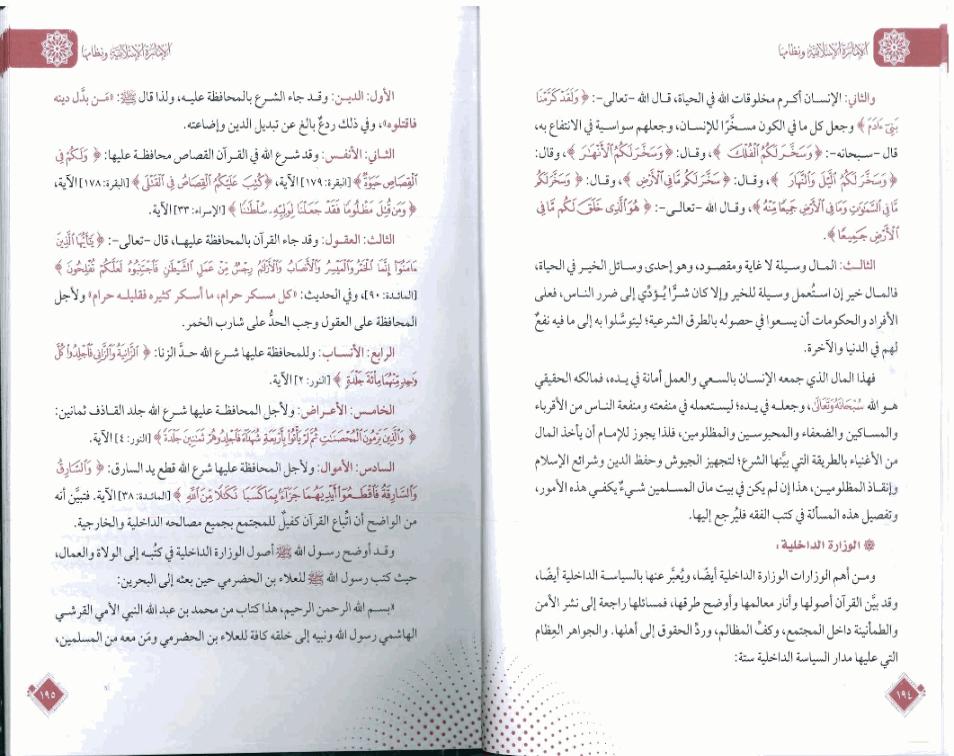 الإمارة الإسلامية ونظامها
والثاني: الإنسان أكرم مخلوقات الله في الحياة، قال الله -تعالى-: ﴿ وَلَقَدْ كَرَّمْنَا
بَنِي آدَمَ ﴾ وجعل كل ما في الكون مسخَّرًا للإنسان، وجعلهم سواسية في الانتفاع به،
قال -سبحانه-: ﴿ وَسَخَّرَ لَكُمُ الْفُلْكَ ﴾، وقال: ﴿ وَسَخَّرَ لَكُمُ الْأَنْهَارَ ﴾، وقال:
﴿ وَسَخَّرَ لَكُمُ اللَّيْلَ وَالنَّهَارَ ﴾، وقال: ﴿ سَخَّرَ لَكُم مَّا فِي الْأَرْضِ ﴾، وقال: ﴿ وَسَخَّرَ لَكُم
مَّا فِي السَّمَاوَاتِ وَمَا فِي الْأَرْضِ جَمِيعًا مِّنْهُ ﴾، وقال الله -تعالى-: ﴿ هُوَ الَّذِي خَلَقَ لَكُم مَّا فِي
الْأَرْضِ جَمِيعًا ﴾.
الثالث: المال وسيلة لا غاية ومقصود، وهو إحدى وسائل الخير في الحياة،
فالمال خير إن استُعمل وسيلة للخير وإلا كان شرًّا يُؤدِّي إلى ضرر الناس، فعلى
الأفراد والحكومات أن يسعوا في حصوله بالطرق الشرعية؛ ليتوسَّلوا به إلى ما فيه نفعٌ
لهم في الدنيا والآخرة.
فهذا المال الذي جمعه الإنسان بالسعي والعمل أمانة في يده، فمالكه الحقيقي
هو الله سُبْحَانَهُ وَتَعَالَىٰ، وجعله في يده؛ ليستعمله في منفعته ومنفعة الناس من الأقرباء
والمساكين والضعفاء والمحبوسين والمظلومين، فلذا يجوز للإمام أن يأخذ المال
من الأغنياء بالطريقة التي بيَّنها الشرع؛ لتجهيز الجيوش وحفظ الدين وشرائع الإسلام
وإنقاذ المظلومين، هذا إن لم يكن في بيت مال المسلمين شيءٌ يكفي هذه الأمور،
وتفصيل هذه المسألة في كتب الفقه فليُرجع إليها.
الوزارة الداخلية:
ومن أهم الوزارات الوزارة الداخلية أيضًا، ويُعبَّر عنها بالسياسة الداخلية أيضًا،
وقد بيَّن القرآن أصولها وأنار معالمها وأوضح طرقها، فمسائلها راجعة إلى نشر الأمن
والطمأنينة داخل المجتمع، وكفِّ المظالم، وردِّ الحقوق إلى أهلها. والجواهر العِظام
التي عليها مدار السياسة الداخلية ستة:
١٩٤
الإمارة الإسلامية ونظامها
الأول: الدين: وقد جاء الشرع بالمحافظة عليه، ولذا قال ﷺ: «مَن بدَّل دينه
فاقتلوه»، وفي ذلك ردعٌ بالغ عن تبديل الدين وإضاعته.
الثاني: الأنفس: وقد شرع الله في القرآن القصاص محافظة عليها: ﴿ وَلَكُمْ فِي
الْقِصَاصِ حَيَوٰةٌ ﴾ [البقرة: ١٧٩] الآية، ﴿ كُتِبَ عَلَيْكُمُ الْقِصَاصُ فِي الْقَتْلَى ﴾ [البقرة: ١٧٨] الآية،
﴿ وَمَن قُتِلَ مَظْلُومًا فَقَدْ جَعَلْنَا لِوَلِيِّهِ سُلْطَانًا ﴾ [الإسراء: ٣٣] الآية.
الثالث: العقول: وقد جاء القرآن بالمحافظة عليها، قال -تعالى-: ﴿ يَا أَيُّهَا الَّذِينَ
ءَامَنُوا إِنَّمَا الْخَمْرُ وَالْمَيْسِرُ وَالْأَنصَابُ وَالْأَزْلَامُ رِجْسٌ مِّنْ عَمَلِ الشَّيْطَانِ فَاجْتَنِبُوهُ لَعَلَّكُمْ تُفْلِحُونَ ﴾
[المائدة: ٩٠]، وفي الحديث: «كل مسكر حرام، ما أسكر كثيره فقليله حرام» ولأجل
المحافظة على العقول وجب الحدُّ على شارب الخمر.
الرابع: الأنساب: وللمحافظة عليها شرع الله حدَّ الزنا: ﴿ الزَّانِيَةُ وَالزَّانِي فَاجْلِدُوا كُلَّ
وَاحِدٍ مِّنْهُمَا مِائَةَ جَلْدَةٍ ﴾ [النور: ٢] الآية.
الخامس: الأعراض: ولأجل المحافظة عليها شرع الله جلد القاذف ثمانين:
﴿ وَالَّذِينَ يَرْمُونَ الْمُحْصَنَاتِ ثُمَّ لَمْ يَأْتُوا بِأَرْبَعَةِ شُهَدَاءَ فَاجْلِدُوهُمْ ثَمَانِينَ جَلْدَةً ﴾ [النور: ٤] الآية.
السادس: الأموال: ولأجل المحافظة عليها شرع الله قطع يد السارق: ﴿ وَالسَّارِقُ
وَالسَّارِقَةُ فَاقْطَعُوا أَيْدِيَهُمَا جَزَاءً بِمَا كَسَبَا نَكَالًا مِّنَ اللَّهِ ﴾ [المائدة: ٣٨] الآية. فتبيَّن أنه
من الواضح أن اتِّباع القرآن كفيلٌ للمجتمع بجميع مصالحه الداخلية والخارجية.
وقد أوضح رسول الله ﷺ أصول الوزارة الداخلية في كتُبه إلى الولاة والعمال،
حيث كتب رسول الله ﷺ للعلاء بن الحضرمي حين بعثه إلى البحرين:
«بسم الله الرحمن الرحيم، هذا كتاب من محمد بن عبد الله النبي الأمي القرشي
الهاشمي رسول الله ونبيه إلى خلقه كافة للعلاء بن الحضرمي ومَن معه من المسلمين،
١٩٥